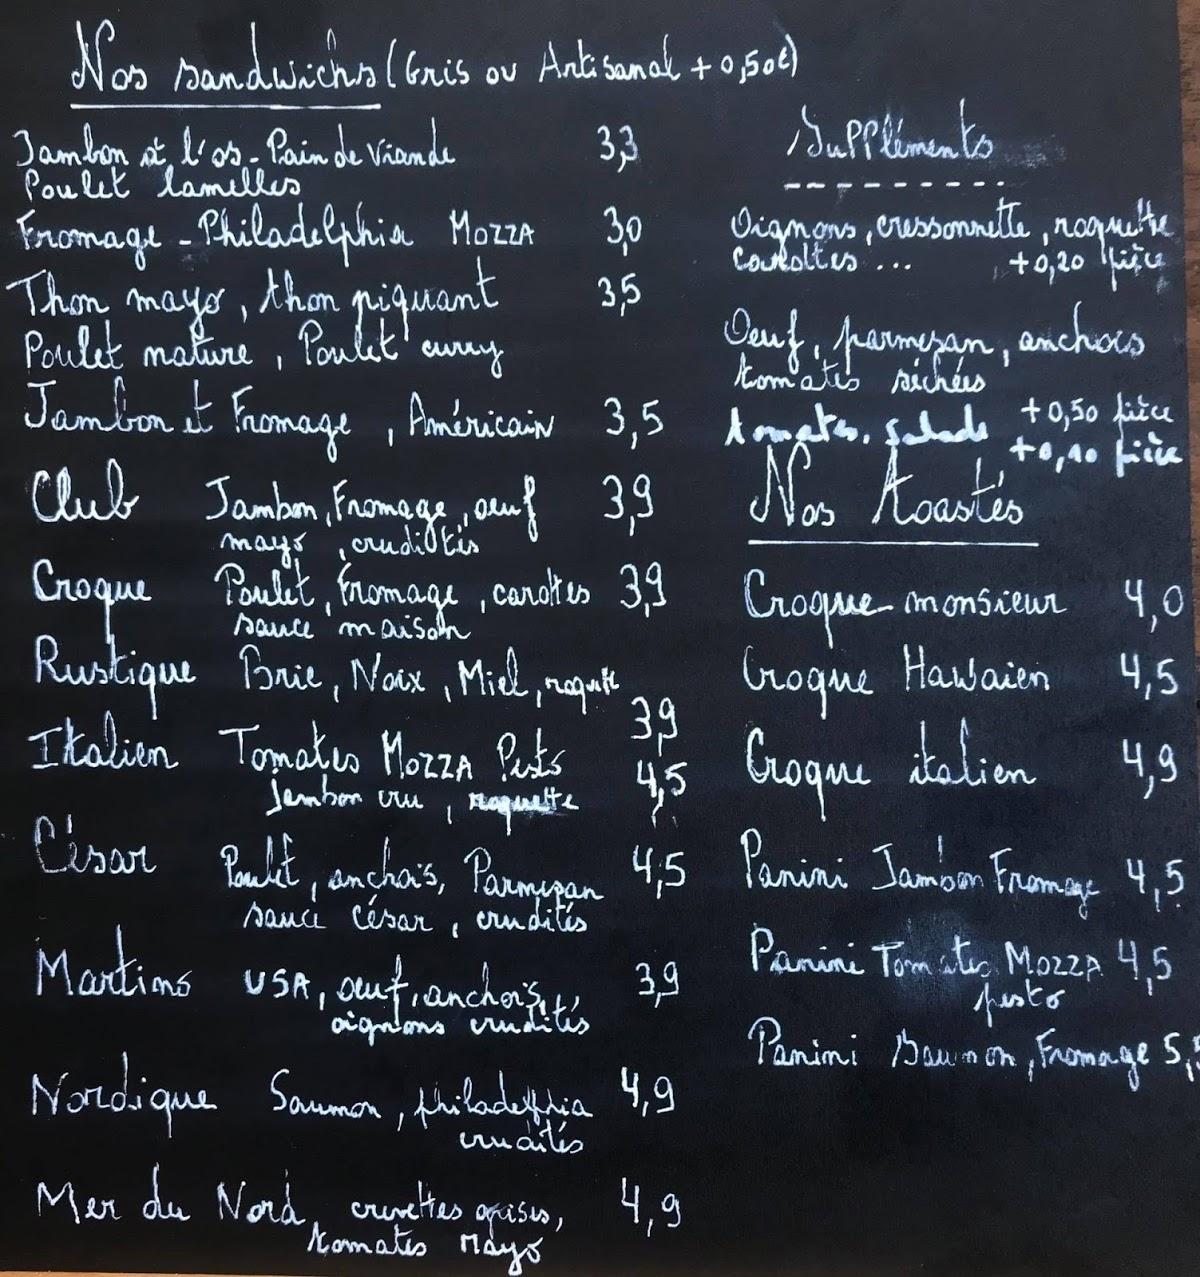 Nos sandwichs (Gris ou Artisanal + 0,50€)
Jambon et l'os - Pain de Viande 3,3
Poulet lamelles
Fromage - Philadelphia Mozza 3,0
Thon mayo, thon piquant 3,5
Poulet nature, Poulet curry
Jambon et Fromage, Américain 3,5
Club Jambon, Fromage, oeuf 3,9
mayo, crudités
Croque Poulet, Fromage, carottes 3,9
sauce maison
Rustique Brie, Noix, Miel, roquette
3,9
Italien Tomates Mozza Pesto 4,5
jambon cru, roquette
César Poulet, anchois, Parmezan 4,5
sauce césar, crudités
Martino USA, oeuf, anchois, 3,9
oignons crudités
Nordique Saumon, philadelphia 4,9
crudités
Mer du Nord, crevettes grises, 4,9
tomates Mayo
Suppléments
Oignons, cressonnette, roquette
carottes ... +0,20 pièce
Oeuf, parmezan, anchois
tomates séchées
+0,50 pièce
tomates, salade +0,10 pièce
Nos Toastés
Croque-monsieur 4,0
Croque Hawaien 4,5
Croque italien 4,9
Panini Jambon Fromage 4,5
Panini Tomates Mozza 4,5
pesto
Panini Saumon, Fromage 5,5